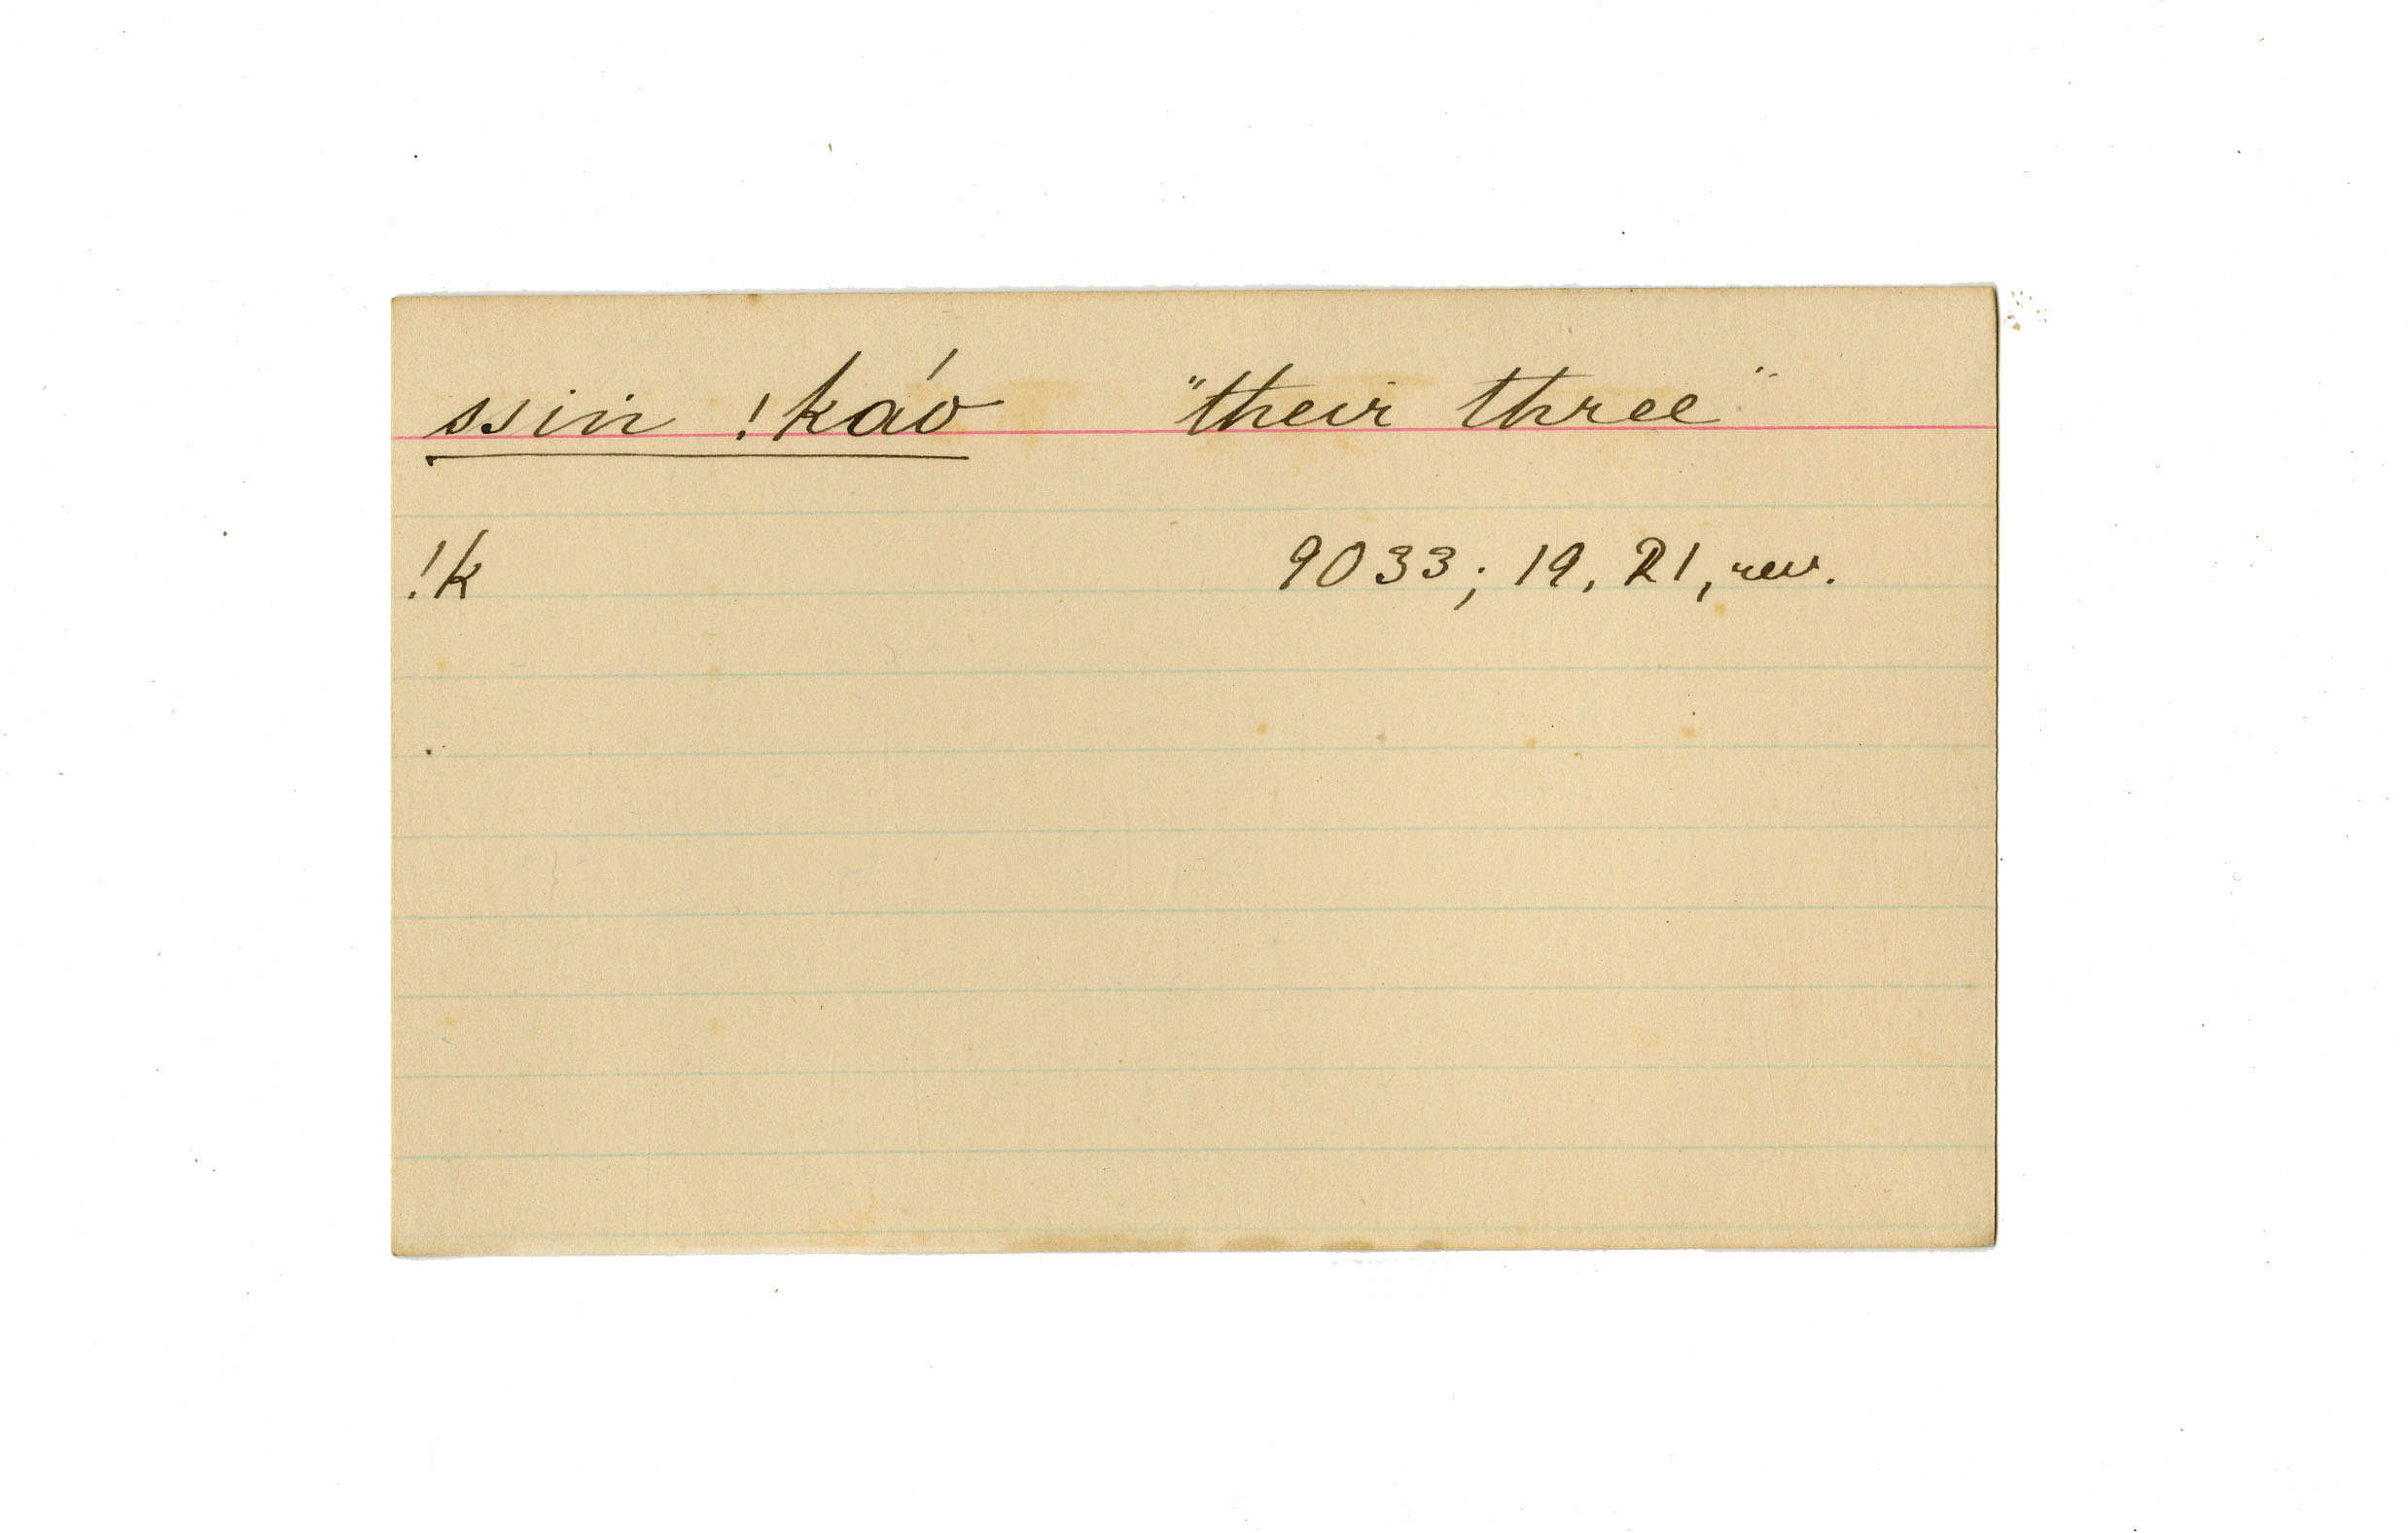 ssin !káo "their three"
!k 9033; 19, 21, rev.